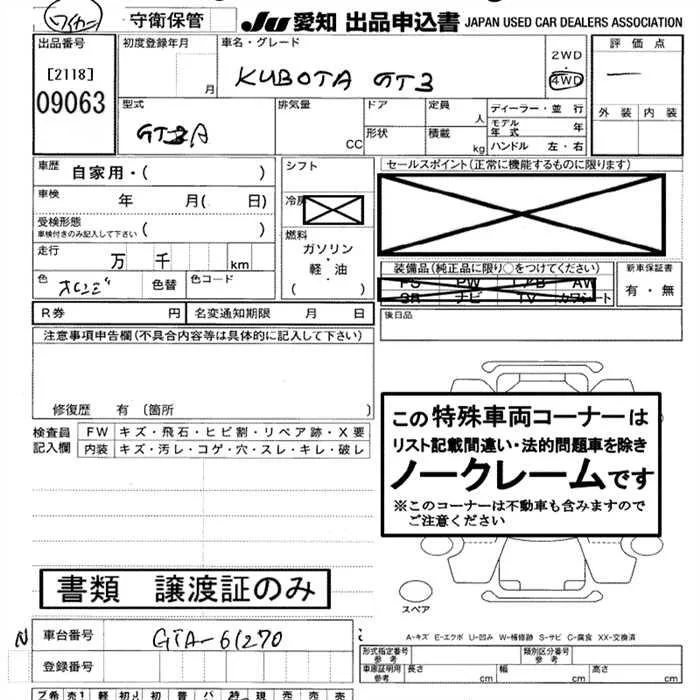 守衛保管
JU 愛知 出品申込書 JAPAN USED CAR DEALERS ASSOCIATION
出品番号
[2118]
09063
初度登録年月
月
車名・グレード
KUBOTA GT3
2WD
・
4WD
評価点
外装 内装
型式
排気量
CC
ドア
形状
定員
人
積載
kg
ディーラー・並行
モデル年式 年
ハンドル 左・右
車歴 自家用・( )
車検 年 月( 日)
受検形態
車検付きのみ記入して下さい ( )
走行 万 千 km
色 色替 色コード
シフト
冷房
燃料
ガソリン
・
軽・油
( )
セールスポイント(正常に機能するものに限ります)
装備品(純正品に限り○をつけてください)
PS PW AW
SR ナビ TV カワシート
新車保証書
有・無
後日品
R券 円 名変通知期限 月 日
注意事項申告欄(不具合内容等は具体的に記入して下さい)
修復歴 有 〔箇所 〕
検査員
記入欄
FW キズ・飛石・ヒビ割・リペア跡・X要
内装 キズ・汚レ・コゲ・穴・スレ・キレ・破レ
この特殊車両コーナーは
リスト記載間違い・法的問題車を除き
ノークレームです
※このコーナーは不動車も含みますので
ご注意ください
書類 譲渡証のみ
スペア
A-キズ E-エクボ U-凹み W-補修跡 S-サビ C-腐食 XX-交換済
N 車台番号 GTA-61270
登録番号
形式指定番号
参考
類別区分番号
参考
車庫証明用
参考
長さ cm 幅 cm 高さ cm